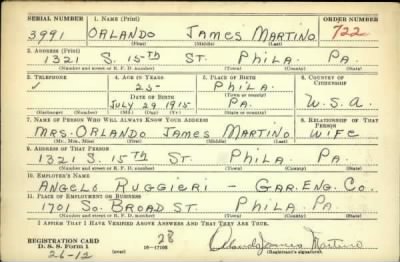 SERIAL NUMBER 1. NAME (Print) ORDER NUMBER
3991 ORLANDO JAMES MARTINO 722
(First) (Middle) (Last)
2. ADDRESS (Print)
1321 S. 15TH ST. PHILA. PA.
(Number and street or R. F. D. number) (Town) (County) (State)
3. TELEPHONE 4. AGE IN YEARS 5. PLACE OF BIRTH 6. COUNTRY OF CITIZENSHIP
✓ 25 PHILA.
DATE OF BIRTH (Town or county)
JULY 29 1915 PA. U.S.A.
(Exchange) (Number) (Mo.) (Day) (Yr.) (State or country)
7. NAME OF PERSON WHO WILL ALWAYS KNOW YOUR ADDRESS 8. RELATIONSHIP OF THAT PERSON
MRS. ORLANDO JAMES MARTINO WIFE
(Mr., Mrs., Miss) (First) (Middle) (Last)
9. ADDRESS OF THAT PERSON
1321 S. 15TH ST. PHILA. PA.
(Number and street or R. F. D. number) (Town) (County) (State)
10. EMPLOYER'S NAME
ANGELO RUGGIERI - GAR. ENG. CO.
11. PLACE OF EMPLOYMENT OR BUSINESS
1701 SO. BROAD ST. PHILA. PA.
(Number and street or R. F. D. number) (Town) (County) (State)
I AFFIRM THAT I HAVE VERIFIED ABOVE ANSWERS AND THAT THEY ARE TRUE.
REGISTRATION CARD 28 Orlando James Martino
D. S. S. Form 1 (over) 16—17105 (Registrant's signature)
26-12